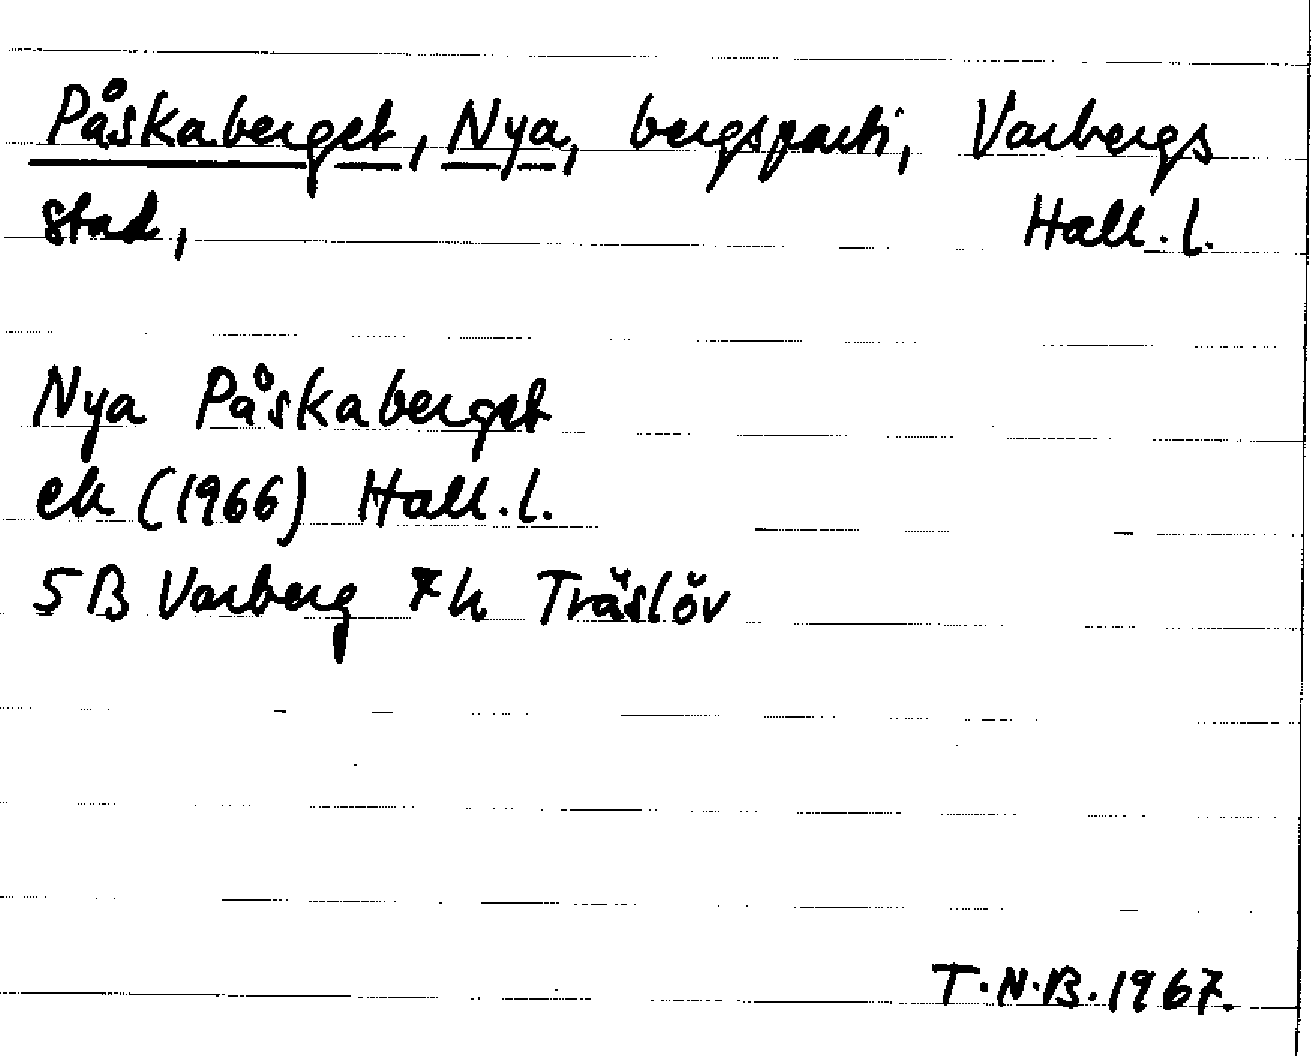 Påskaberget, Nya, bergsparti, Varbergs
stad, Hall. l.
Nya Påskaberget
ek (1966) Hall. l.
5B Varberg 7h Träslöv
T.N.B. 1967.